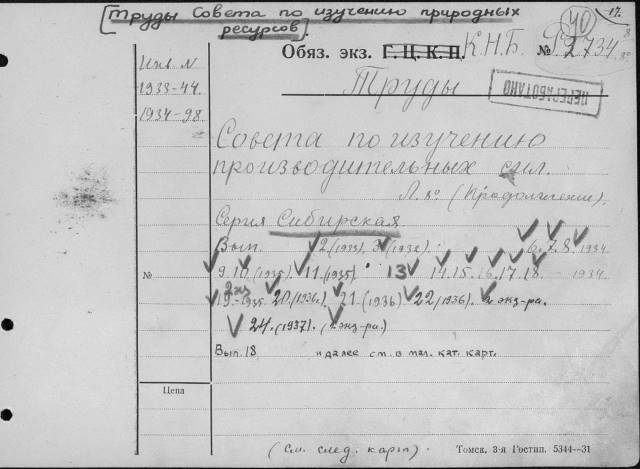 [Труды Совета по изучению природных
ресурсов].
40
17.
Обяз. экз. Г. Ц. К. П. К.Н.Б. № 2734
Инв. №
1933-44.
1934-98.
Труды
ПЕРЕРАБОТАНО
Совета по изучению
производительных сил.
Л. 8º (Продолжение).
Серия Сибирская
Вып. 2 (1933). 3 (1932). 6. 7. 8. 1934
№ 9. 10. (1935). 11 (1935). 13 14. 15. 16. 17. 18. — 1934.
2 экз
19. — 1935. 20. (1936). 21. (1936) 22 (1936). 2 экз-ра.
24. (1937). (2 экз-ра).
Вып. 18 и далее см. в мал. кат. карт.
Цена
(См. след. карт).
Томск, 3-я Гостип. 5344—31